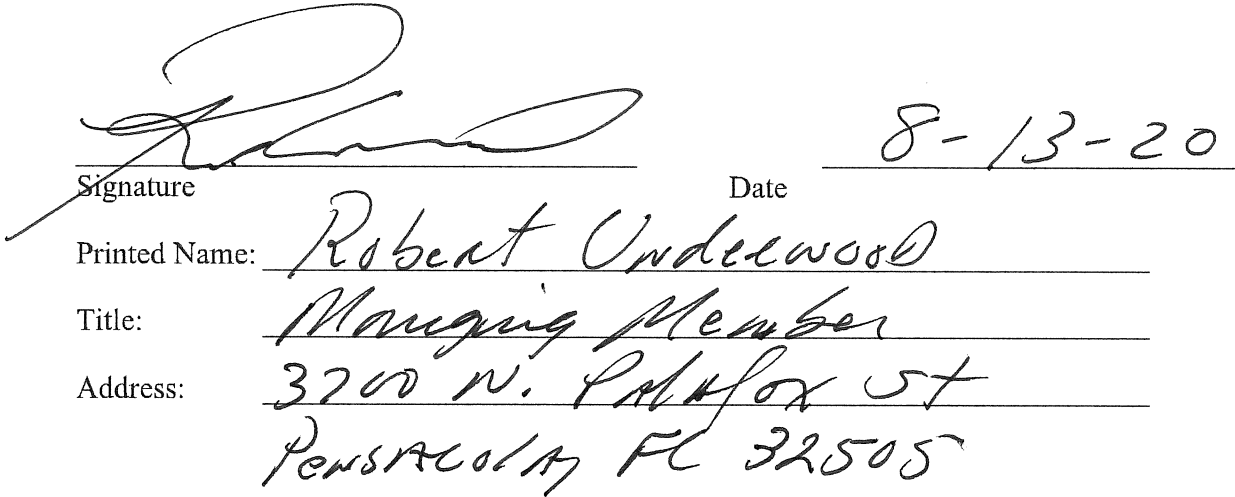 8-13-20
Signature Date
Printed Name: Robert Underwood
Title: Managing Member
Address: 3700 N. Palafox St
Pensacola, FL 32505